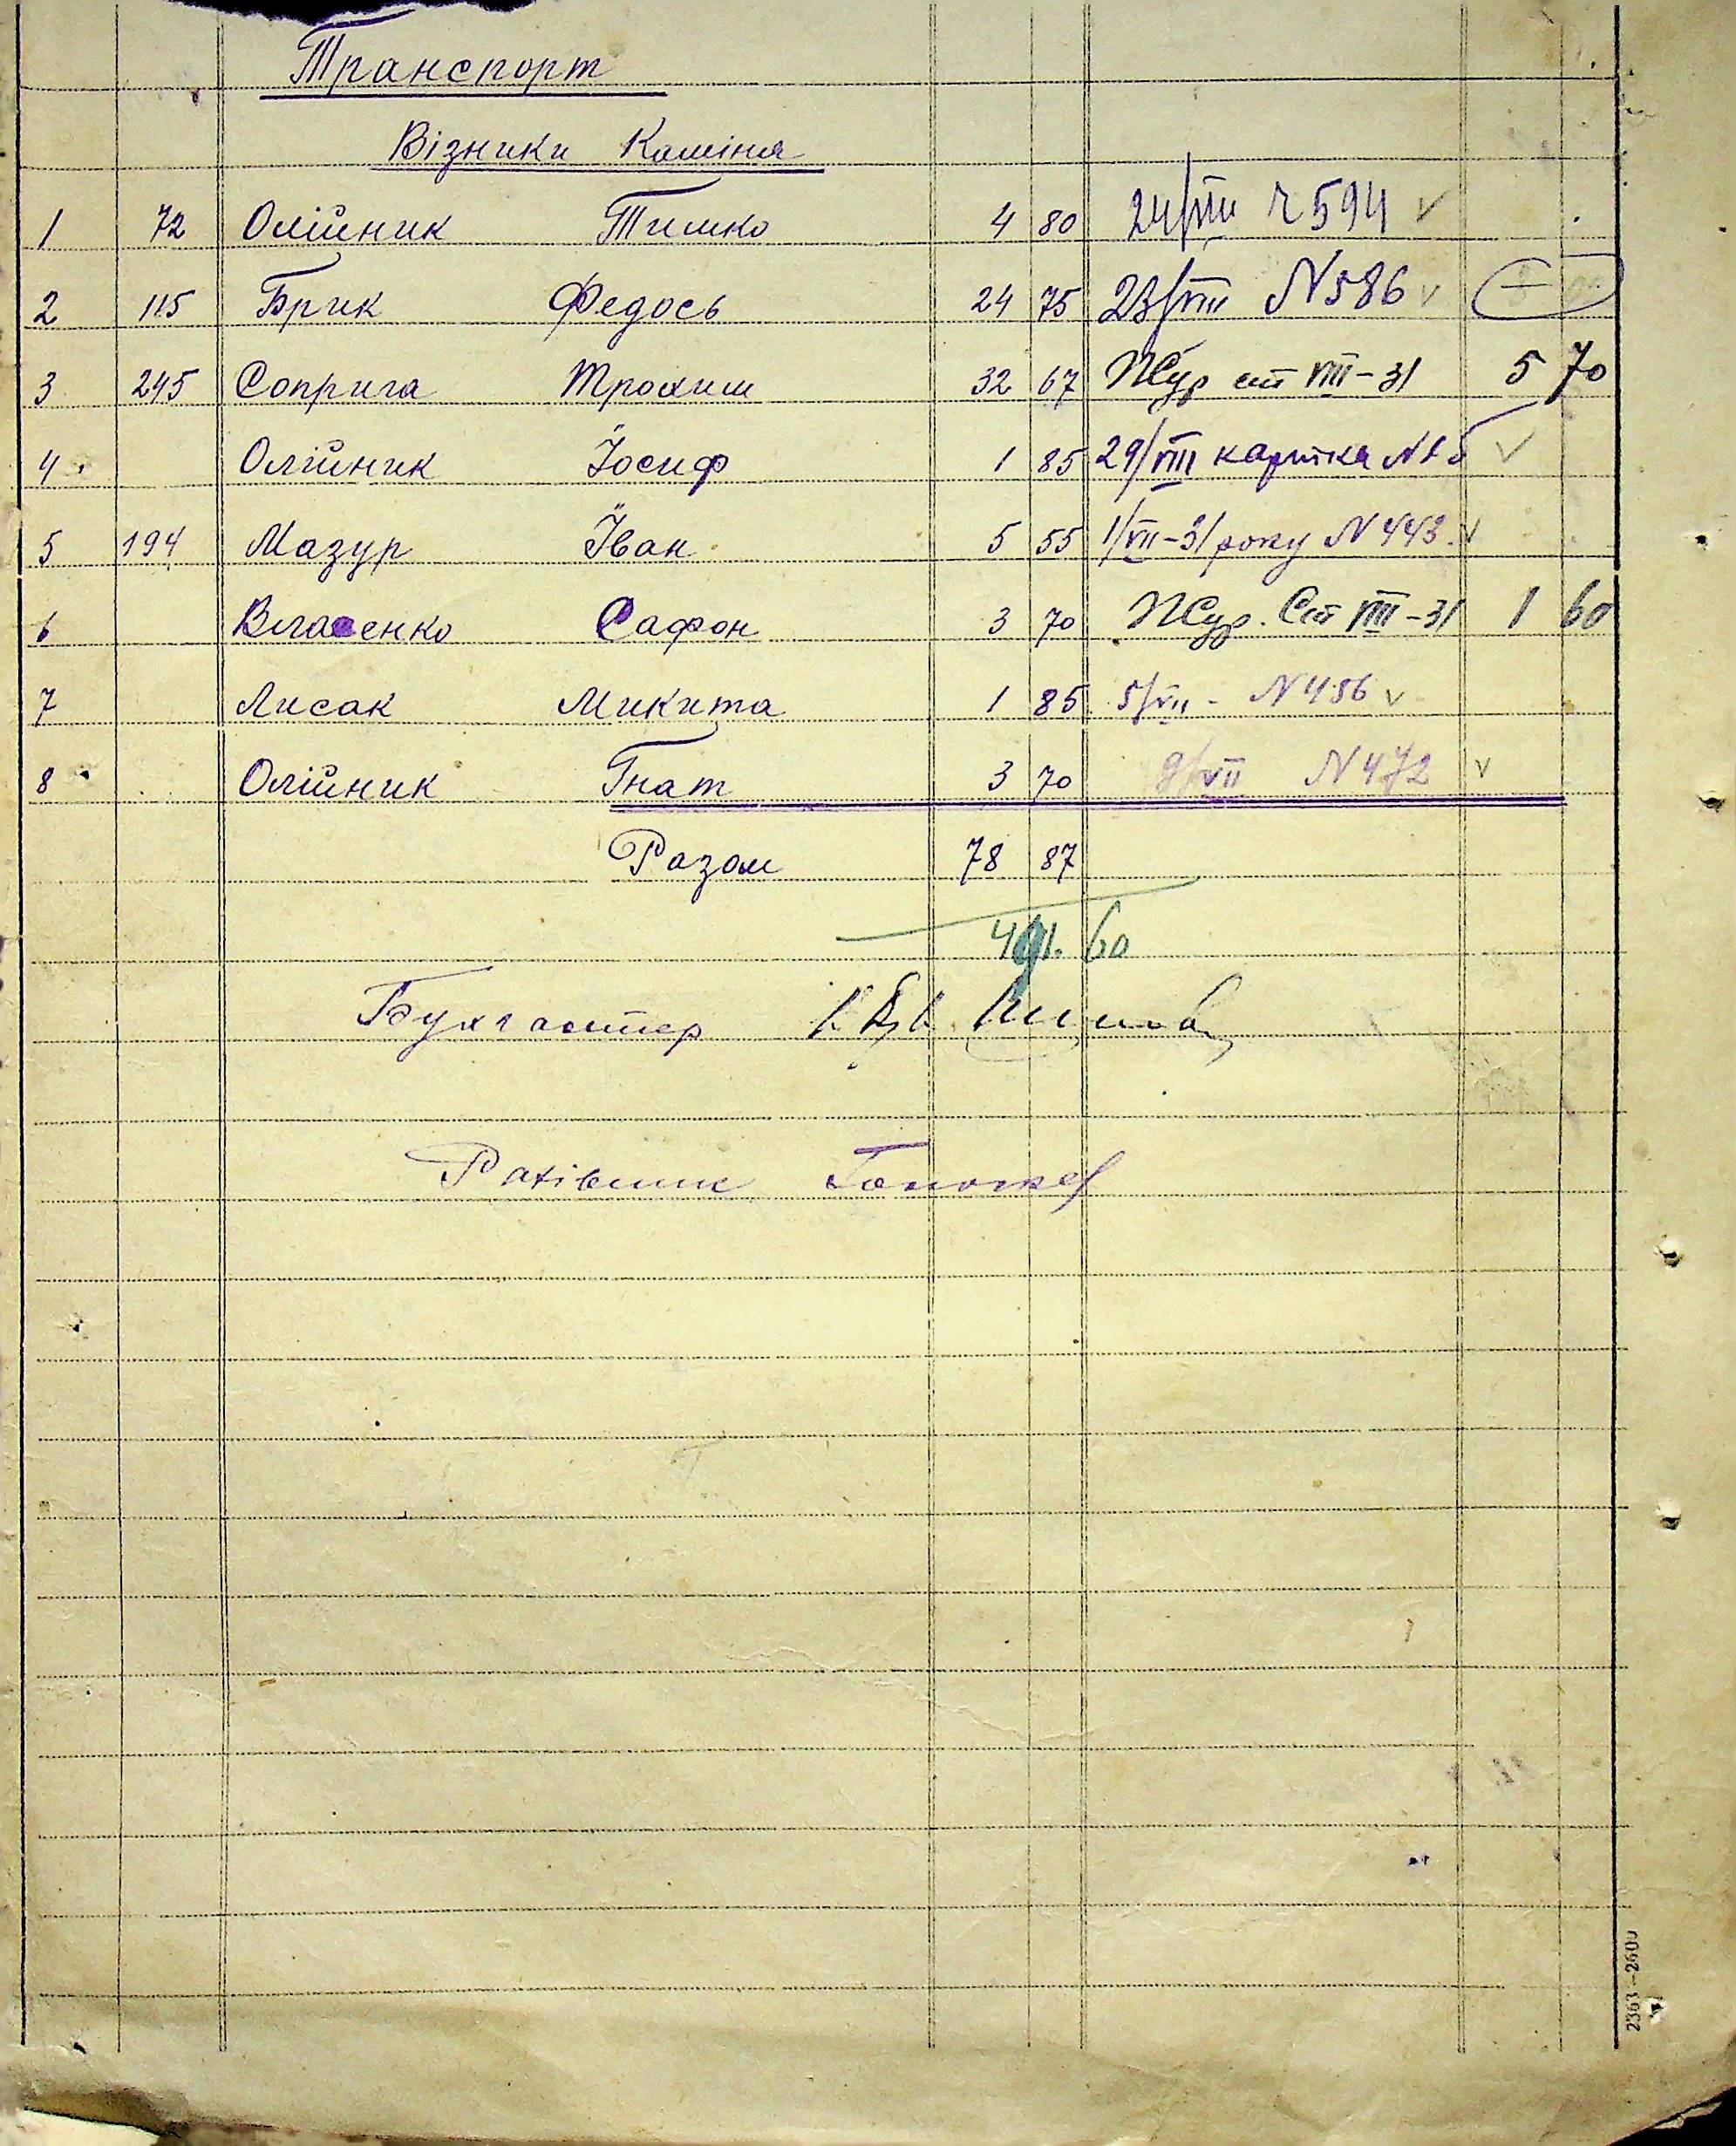 Транспорт
Візники Каміня
1 72 Олійник Тимко 4 80 24/VIII ч 594 ✓
2 115 Брик Федось 24 75 23/VIII N 586 ✓
3 245 Соприга Трохим 32 67 Жур ст VIII-31 5 70
4 Олійник Йосиф 1 85 29/VIII картка N 15 ✓
5 194 Мазур Іван 5 55 1/VII-31 року N 443. ✓
6 Власенко Сафон 3 70 Жур. Ст VIII-31 1 60
7 Лисак Микита 1 85 5/VII - N 456 ✓
8 Олійник Гнат 3 70 9/VII N 472 ✓
Разом 78 87
491. 60
Бухгалтер
Рахівник
2363—2600